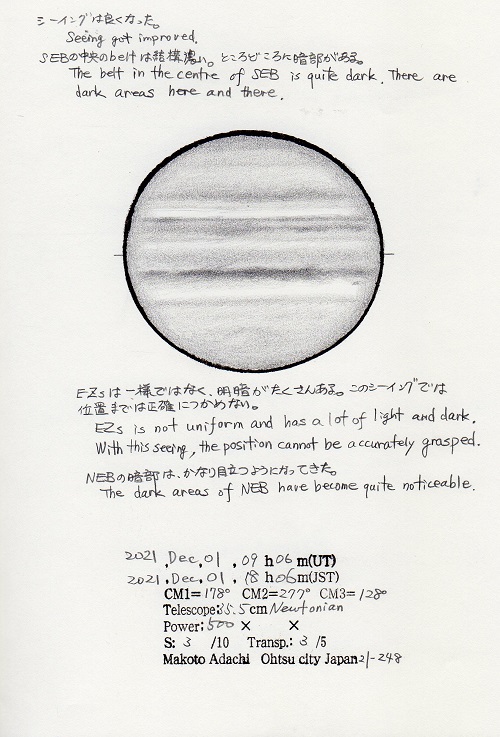 シーイングは良くなった。
Seeing got improved.
SEBの中央のbeltは結構濃い。ところどころに暗部がある。
The belt in the centre of SEB is quite dark. There are
dark areas here and there.
EZsは一様ではなく、明暗がたくさんある。このシーイングでは
位置までは正確につかめない。
EZs is not uniform and has a lot of light and dark.
With this seeing, the position cannot be accurately grasped.
NEBの暗部は、かなり目立つようになってきた。
The dark areas of NEB have become quite noticeable.
2021 ,Dec,01 , 09 h06 m(UT)
2021 ,Dec,01 , 18 h06m(JST)
CM1=178° CM2=277° CM3=128°
Telescope:35.5cm Newtonian
Power:500 × ×
S: 3 /10 Transp.: 3 /5
Makoto Adachi Ohtsu city Japan 21-248